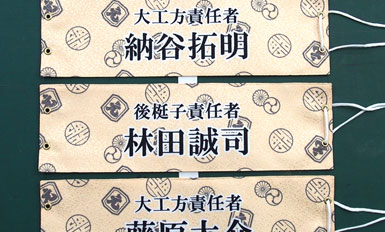 大工方責任者
納谷拓明
後梃子責任者
林田誠司
大工方責任者
藤原大介